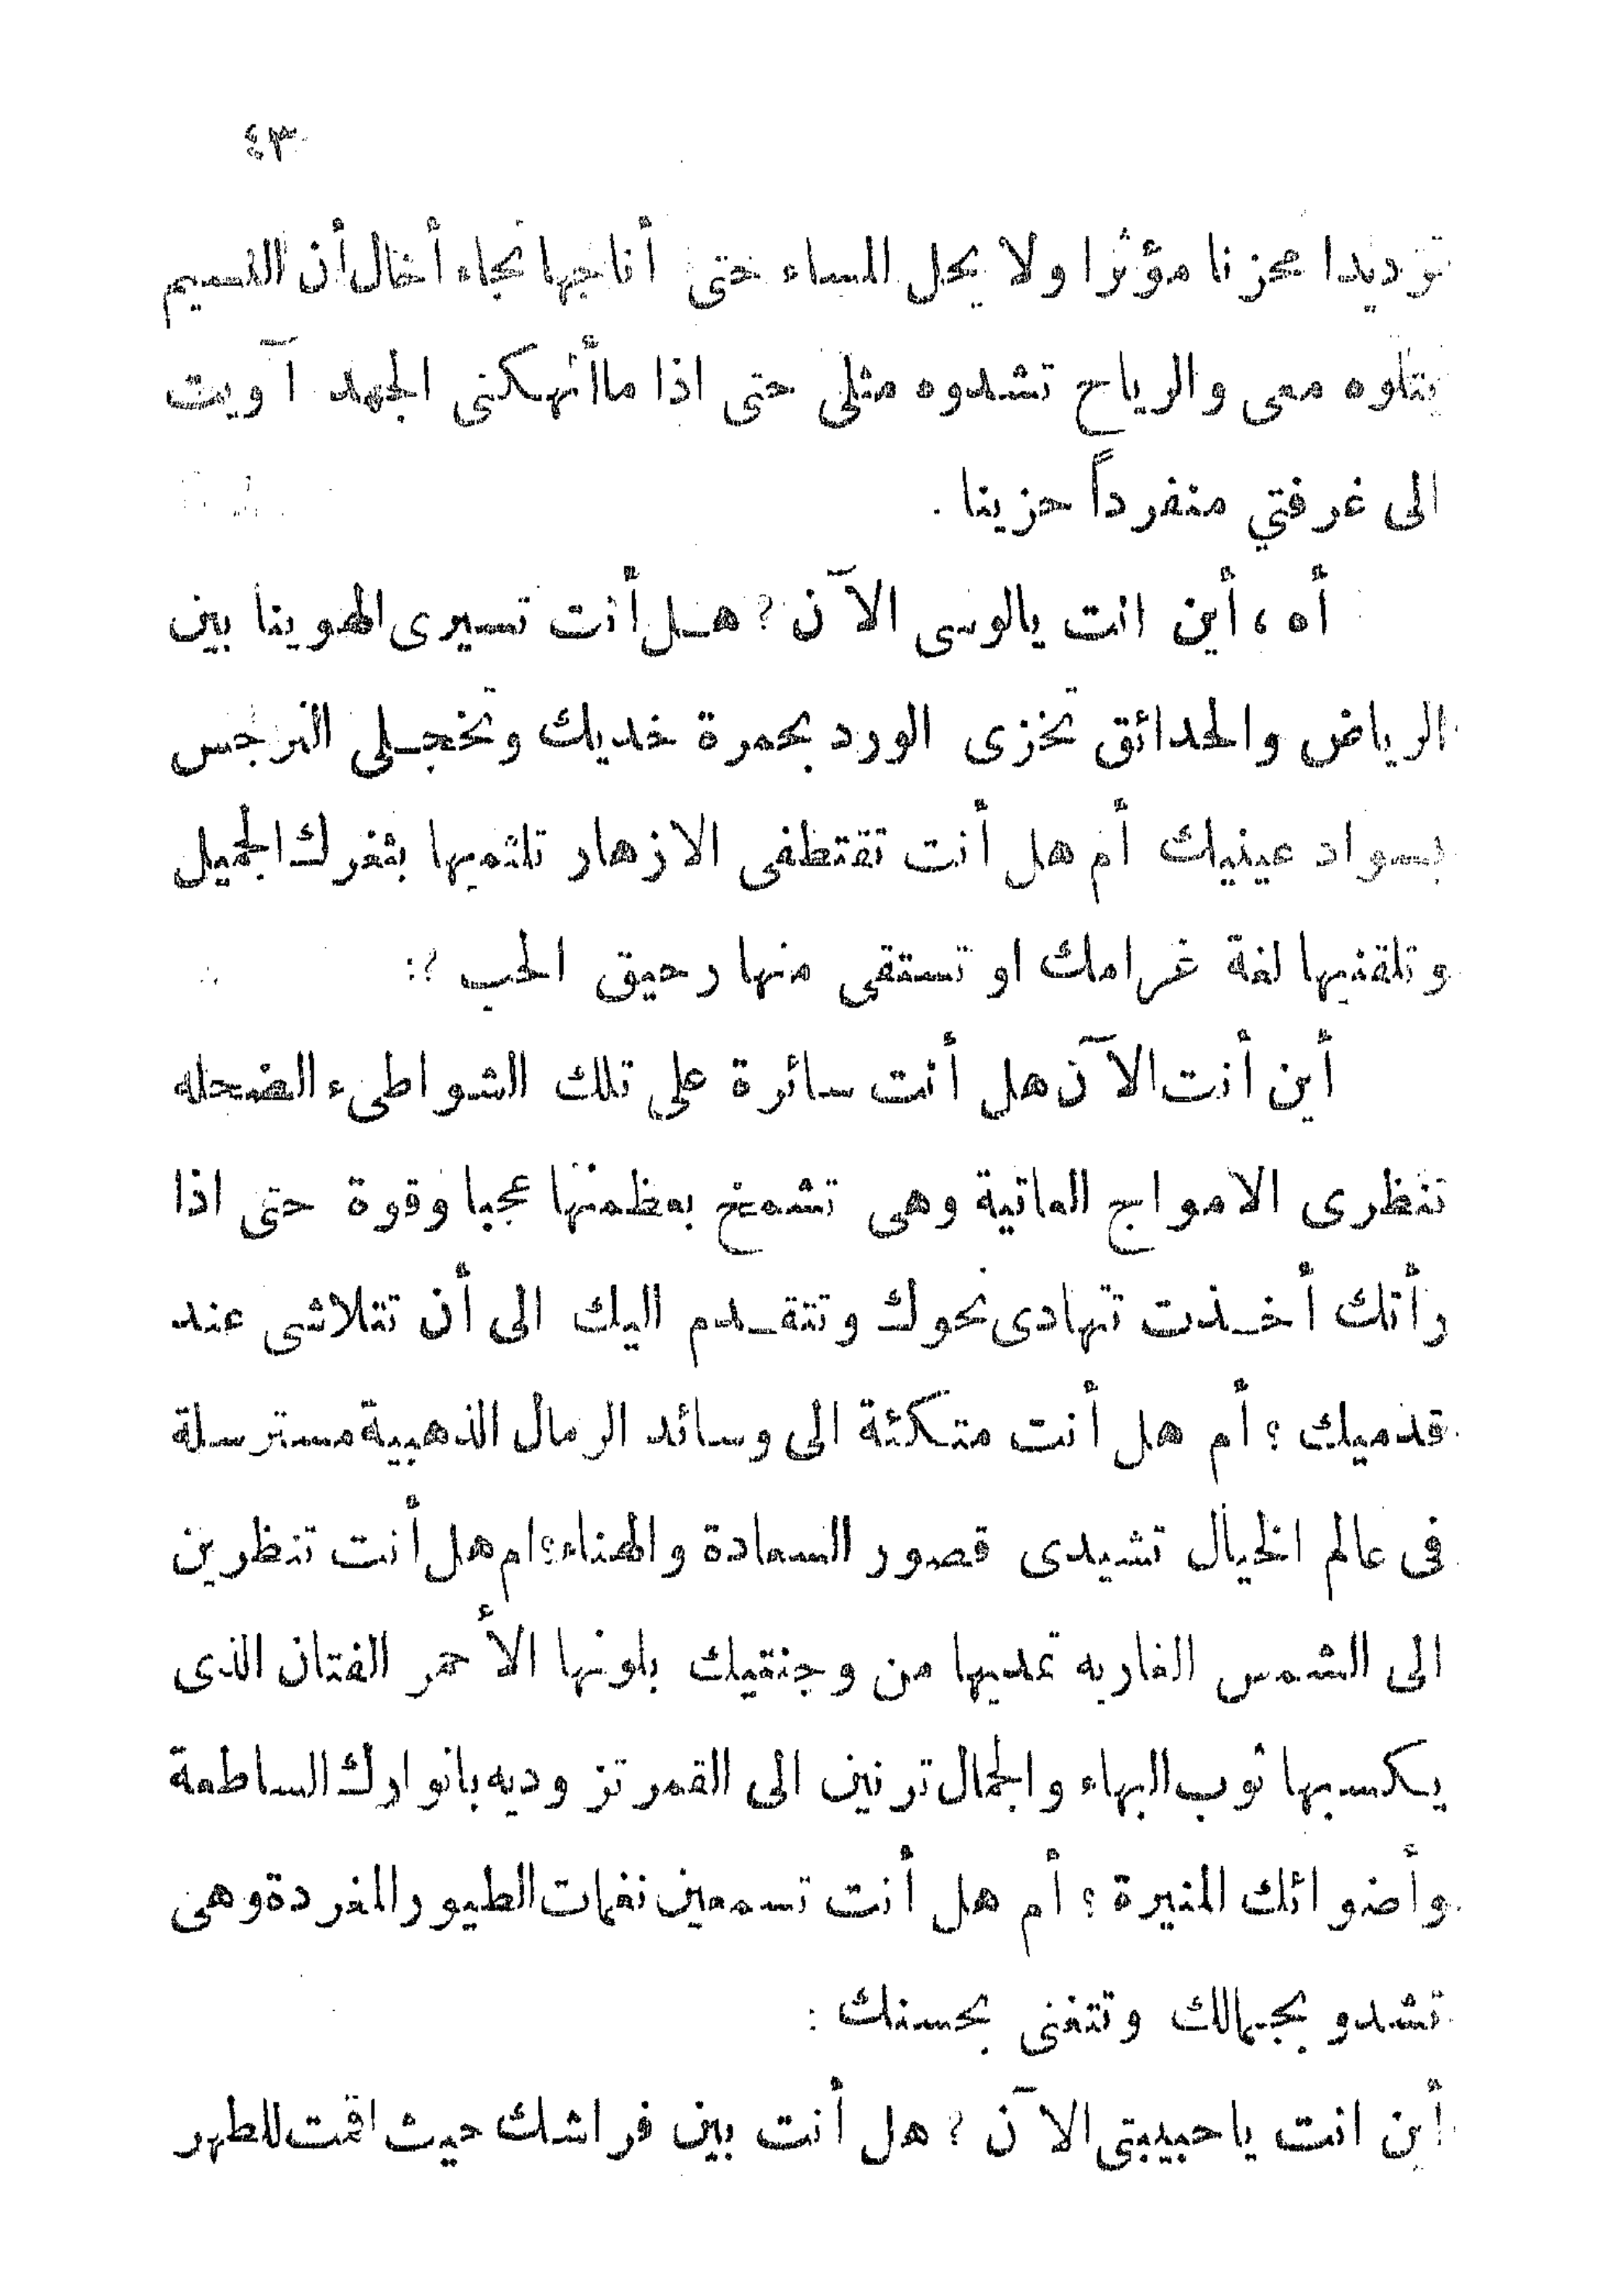 ٤٣
ترديدا محزنا مؤثرا ولا يحل المساء حتى أناجيها تجاء أخال أن النسيم
يتلوه معى والرياح تشدوه مثلى حتى اذا ماأنهكنى الجهد آويت
الى غرفتي منفرداً حزينا .
أه ، أين انت يالوسى الآن ? هل أنت تسيرى الهوينا بين
الرياض والحدائق تخزى الورد بحمرة خديك وتخجلى النرجس
بسواد عينيك أم هل أنت تقتطفى الازهار تلثميها بثغرك الجميل
وتلقنيها لغة غرامك او تستقى منها رحيق الحب ?:
أين أنت الآن هل أنت سائرة على تلك الشواطىء الضحله
تنظرى الامواج العاتية وهى تشمخ بعظمتها عجبا وقوة حتى اذا
رأتك أخذت تتهادى نحوك وتتقدم اليك الى أن تتلاشى عند
قدميك ؟ أم هل أنت متكئة الى وسائد الرمال الذهبية مسترسلة
فى عالم الخيال تشيدى قصور السعادة والهناء؟ ام هل أنت تنظرين
الى الشمس الغاربه تمديها من وجنتيك بلونها الأحمر الفتان الذى
يكسبها ثوب البهاء والجمال ترنين الى القمر تزوديه بانوارك الساطعة
وأضوائك المنيرة ؟ أم هل أنت تسمعين نغمات الطيور المغردة وهى
تشدو بجمالك وتتغنى بحسنك :
أين انت ياحبيبتى الآن ? هل أنت بين فراشك حيث اقمت للطهر